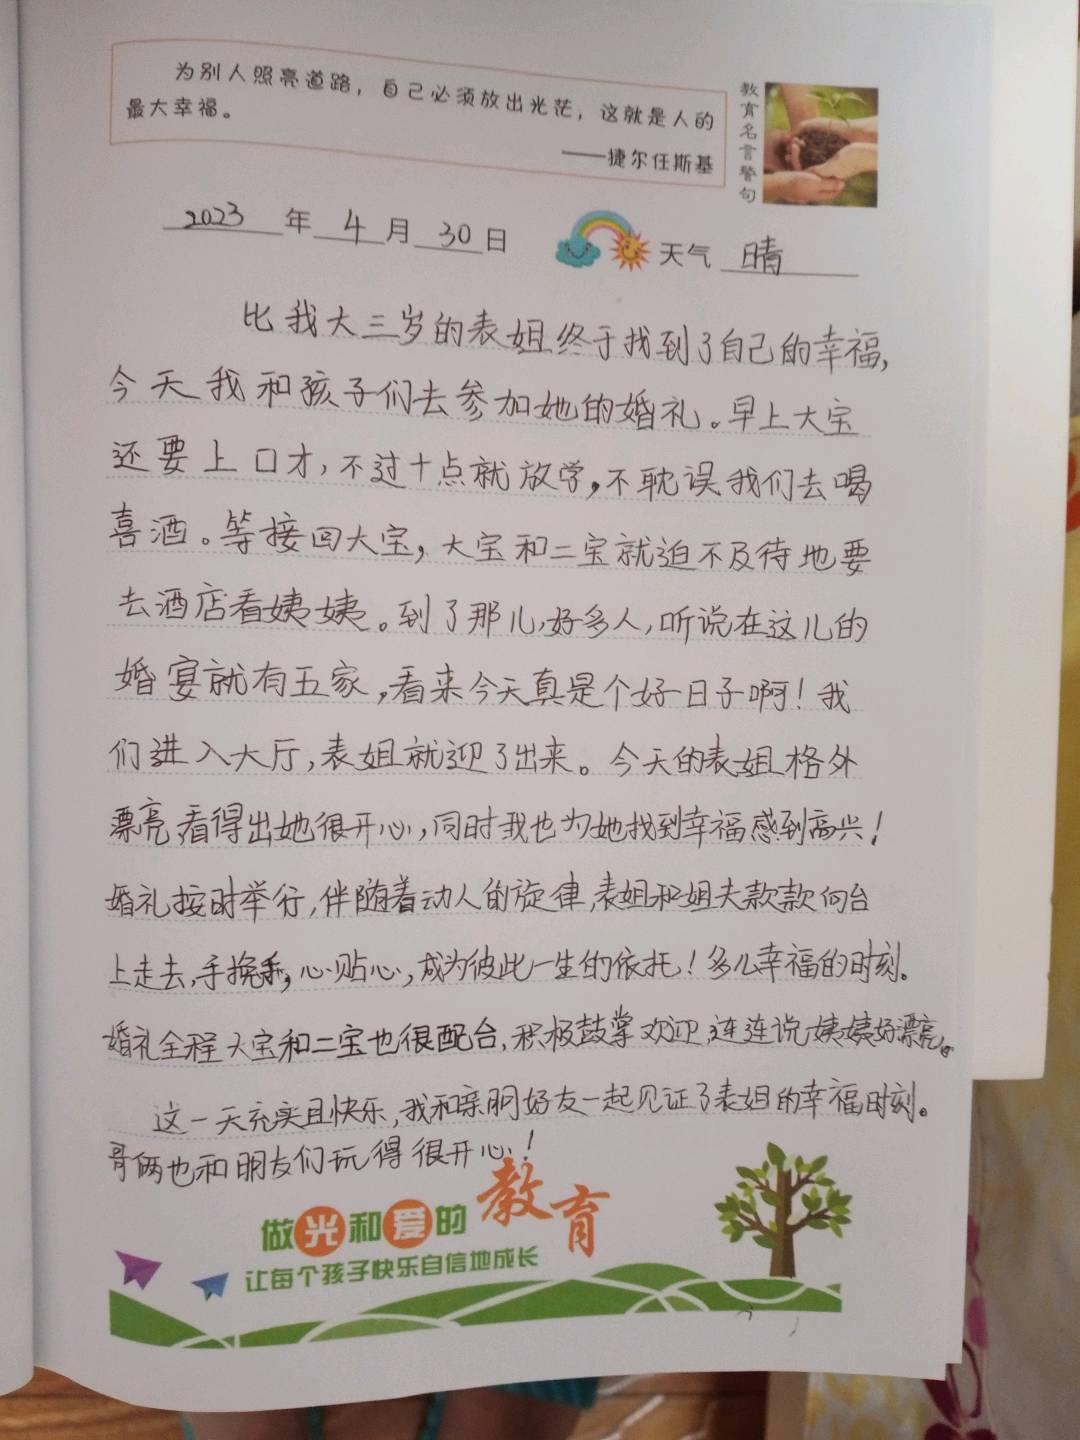 为别人照亮道路，自己必须放出光芒，这就是人的
最大幸福。
——捷尔任斯基
教育名言警句
2023年4月30日 天气 晴
比我大三岁的表姐终于找到了自己的幸福，
今天我和孩子们去参加她的婚礼。早上大宝
还要上口才，不过十点就放学，不耽误我们去喝
喜酒。等接回大宝，大宝和二宝就迫不及待地要
去酒店看姨姨。到了那儿，好多人，听说在这儿的
婚宴就有五家，看来今天真是个好日子啊！我
们进入大厅，表姐就迎了出来。今天的表姐格外
漂亮，看得出她很开心，同时我也为她找到幸福感到高兴！
婚礼按时举行，伴随着动人的旋律，表姐和姐夫款款向台
上走去，手挽手，心贴心，成为彼此一生的依托！多么幸福的时刻。
婚礼全程大宝和二宝也很配合，积极鼓掌欢迎，连连说姨姨好漂亮。
这一天充实且快乐，我和亲朋好友一起见证了表姐的幸福时刻。
哥俩也和朋友们玩得很开心！
做光和爱的教育
让每个孩子快乐自信地成长